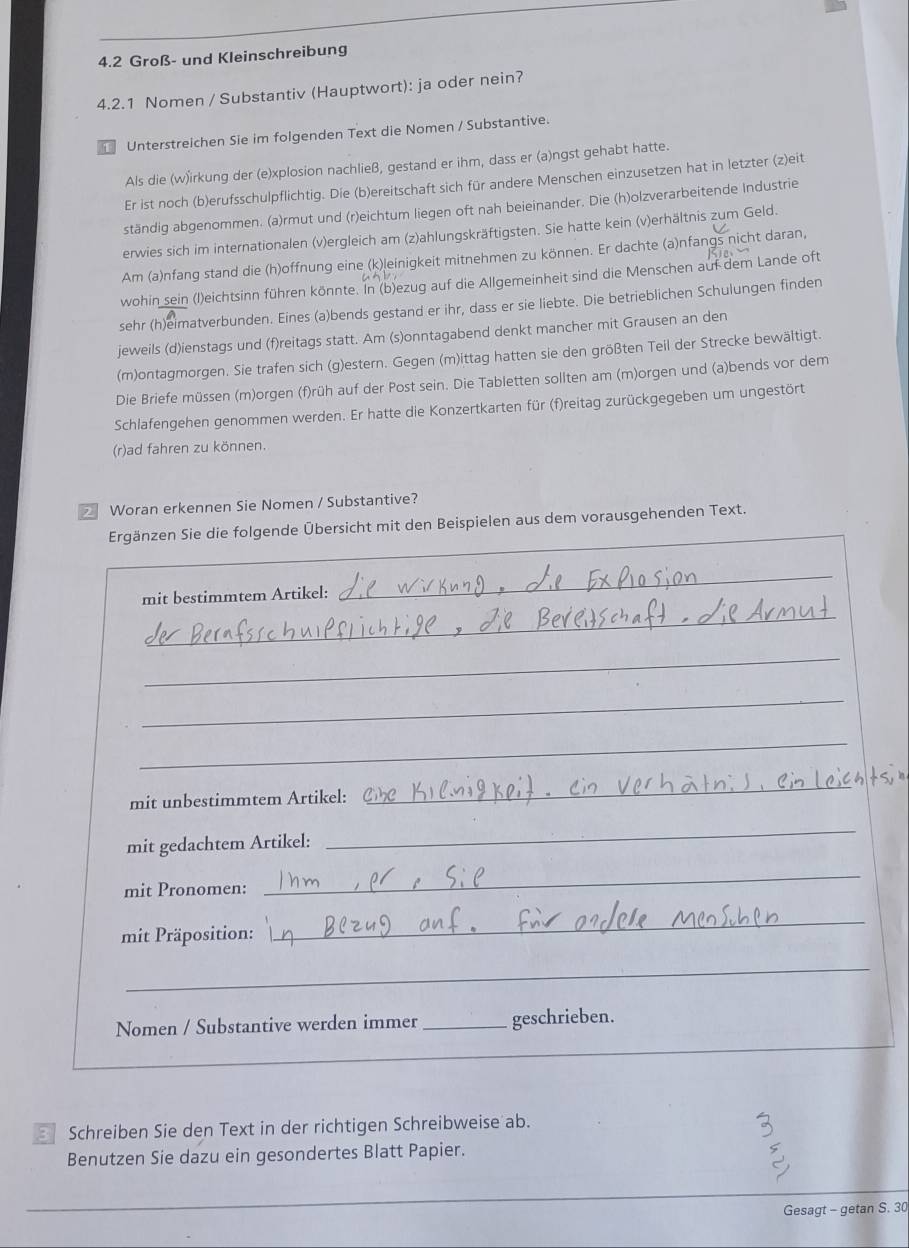 4.2 Groß- und Kleinschreibung
4.2.1 Nomen / Substantiv (Hauptwort): ja oder nein?
1 Unterstreichen Sie im folgenden Text die Nomen / Substantive.
Als die (w)irkung der (e)xplosion nachließ, gestand er ihm, dass er (a)ngst gehabt hatte.
Er ist noch (b)erufsschulpflichtig. Die (b)ereitschaft sich für andere Menschen einzusetzen hat in letzter (z)eit
ständig abgenommen. (a)rmut und (r)eichtum liegen oft nah beieinander. Die (h)olzverarbeitende Industrie
erwies sich im internationalen (v)ergleich am (z)ahlungskräftigsten. Sie hatte kein (v)erhältnis zum Geld.
Am (a)nfang stand die (h)offnung eine (k)leinigkeit mitnehmen zu können. Er dachte (a)nfangs nicht daran,
wohin sein (l)eichtsinn führen könnte. In (b)ezug auf die Allgemeinheit sind die Menschen auf dem Lande oft
sehr (h)eimatverbunden. Eines (a)bends gestand er ihr, dass er sie liebte. Die betrieblichen Schulungen finden
jeweils (d)ienstags und (f)reitags statt. Am (s)onntagabend denkt mancher mit Grausen an den
(m)ontagmorgen. Sie trafen sich (g)estern. Gegen (m)ittag hatten sie den größten Teil der Strecke bewältigt.
Die Briefe müssen (m)orgen (f)rüh auf der Post sein. Die Tabletten sollten am (m)orgen und (a)bends vor dem
Schlafengehen genommen werden. Er hatte die Konzertkarten für (f)reitag zurückgegeben um ungestört
(r)ad fahren zu können.
2 Woran erkennen Sie Nomen / Substantive?
Ergänzen Sie die folgende Übersicht mit den Beispielen aus dem vorausgehenden Text.
mit bestimmtem Artikel: die wirkung, die Explosion
der Berafsschulpflichtige, die Bereitschaft. die Armut
mit unbestimmtem Artikel: eine Kilenigkeit. ein verhätnis, ein leichtsin
mit gedachtem Artikel:
mit Pronomen: Ihm, er, sie
mit Präposition: in Bezug auf. für andere Menschen
Nomen / Substantive werden immer ________ geschrieben.
3 Schreiben Sie den Text in der richtigen Schreibweise ab.
Benutzen Sie dazu ein gesondertes Blatt Papier.
Gesagt – getan S. 30